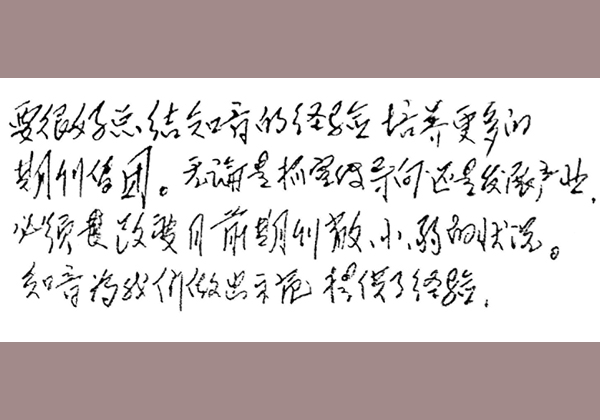 要很好总结知音的经验 培养更多的
期刊集团。无论是抓宣传导向还是发展产业,
必须要改变目前期刊散、小、弱的状况。
知音为我们做出示范 提供了经验,